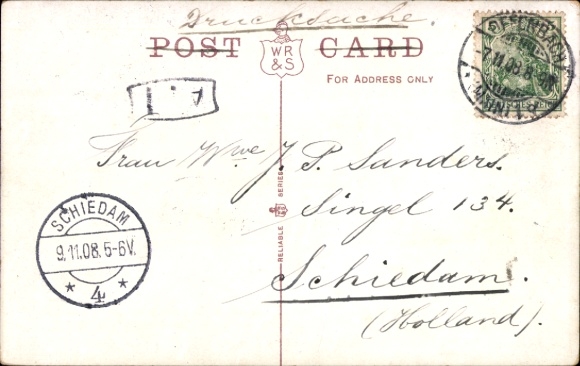 Drucksache.
POST CARD
WR
&S
FOR ADDRESS ONLY
Frau Wwe J. P. Sanders.
Singel 134.
Schiedam.
(Holland).
RELIABLE SERIES
SCHIEDAM
9.11.08.5-6V.
* 4 *
OFFENBACH
11.08.8-9